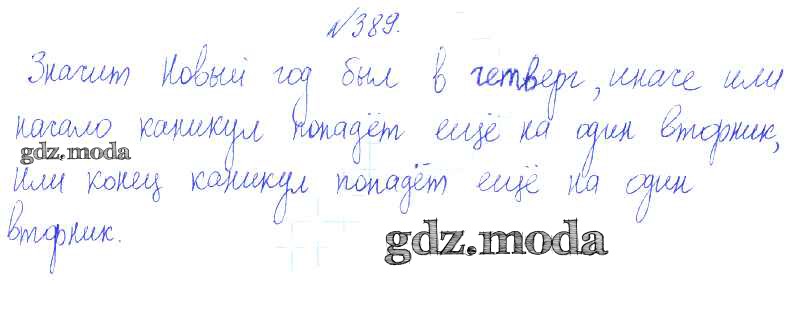 №389.
Значит Новый год был в четверг, иначе или
начало каникул попадёт ещё на один вторник,
gdz.moda
или конец каникул попадёт ещё на один
вторник.
gdz.moda